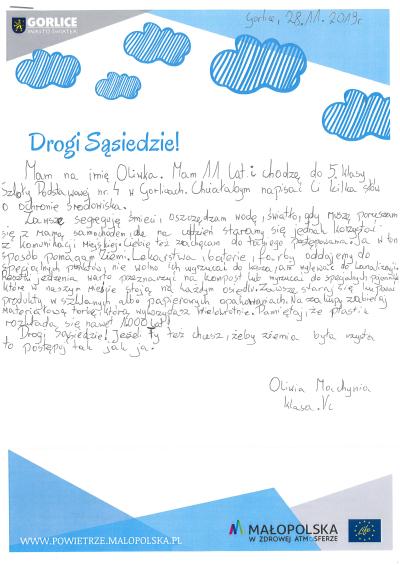 GORLICE
MIASTO ŚWIATŁA
Gorlice, 28.11.2019r
Drogi Sąsiedzie!
Mam na imię Oliwka. Mam 11 lat i chodzę do 5. klasy
Szkoły Podstawowej nr 4 w Gorlicach. Chciałabym napisać Ci kilka słów
o ochronie środowiska.
Zawsze segreguję śmieci, oszczędzam wodę, światło, gdy muszę poruszam
się z mamą samochodem, ale na codzień staramy się jednak korzystać
z komunikacji miejskiej. Ciebie też zachęcam do takiego postępowania. Ja w ten
sposób pomagam Ziemi. Lekarstwa, baterie, farby oddajemy do
specjalnych punktów, nie wolno ich wyrzucać do kosza, ani wylewać do kanalizacji.
Resztki jedzenia warto przeznaczyć na kompost lub wyrzucać do specjalnych pojemników
które w naszym mieście stoją na każdym osiedlu. Zawsze staraj się kupować
produkty w szklanych albo papierowych opakowaniach. Na zakupy zabieraj
materiałową torbę, którą wykorzystasz wielokrotnie. Pamiętaj, że plastik
rozkłada się nawet 1000 lat!
Drogi sąsiedzie! Jeśli Ty też chcesz, żeby ziemia była czysta
to postępuj tak jak ja.
Oliwia Machynia
klasa Vc
WWW.POWIETRZE.MALOPOLSKA.PL
MAŁOPOLSKA
W ZDROWEJ ATMOSFERZE
life